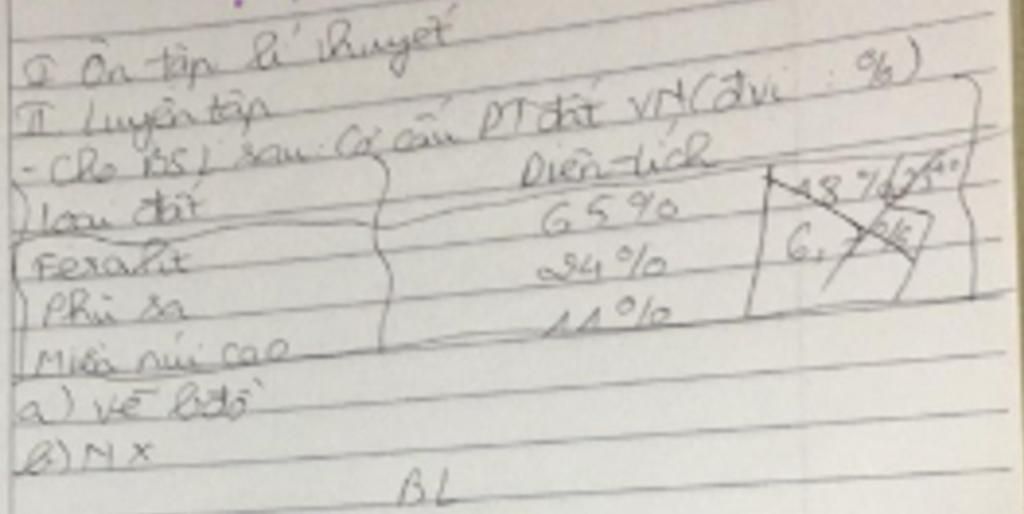 I Ôn tập lí thuyết
II Luyện tập
- Cho BSL sau: Cơ cấu DT đất VN (đvi : %)
Loại đất Diện tích
Feralit 65%
Phù sa 24%
Miền núi cao 11%
a) vẽ b.đồ
b) NX
BL